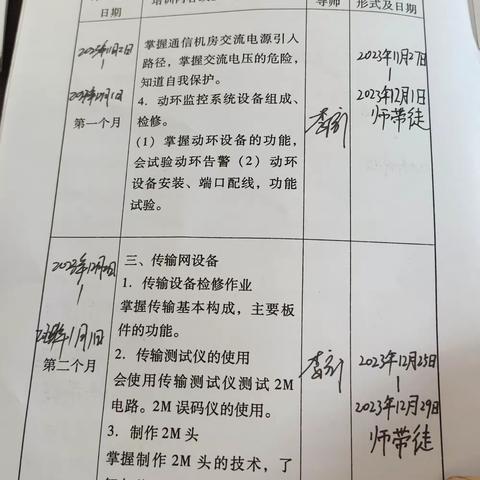 日期
导师
形式及日期
掌握通信机房交流电源引入
路径，掌握交流电压的危险，
知道自我保护。
4．动环监控系统设备组成、
检修。
(1）掌握动环设备的功能，
会试验动环告警（2）动环
设备安装、端口配线，功能
试验。
第一个月
2023年11月27日
2023年12月1日
师带徒
三、传输网设备
1．传输设备检修作业
掌握传输基本构成，主要板
件的功能。
2．传输测试仪的使用
会使用传输测试仪测试 2M
电路。2M 误码仪的使用。
3．制作 2M 头
掌握制作 2M 头的技术，了
第二个月
2023年12月25日
2023年12月29日
师带徒